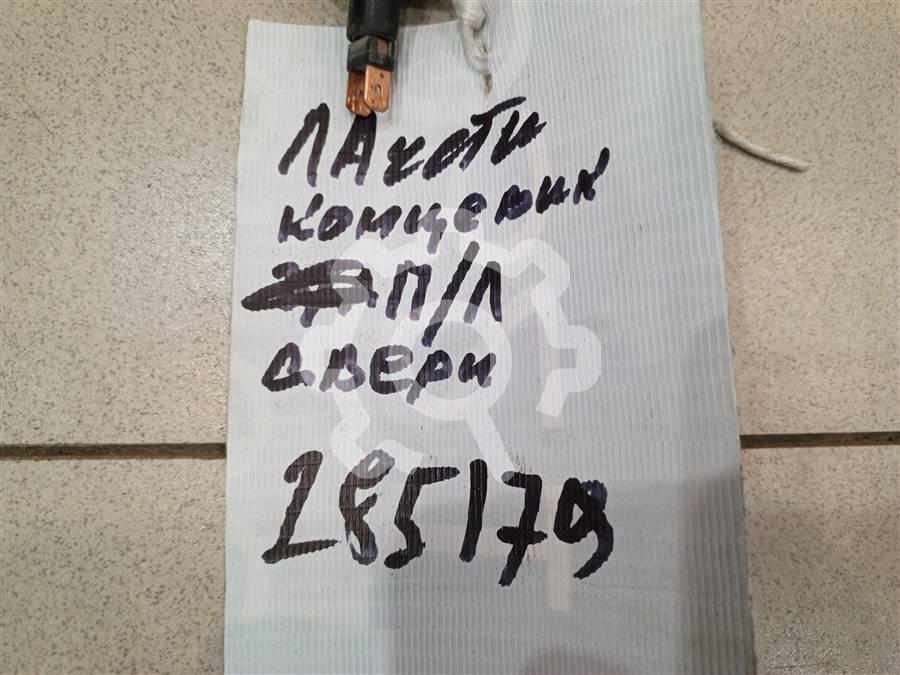 ЛАчеТи
концевик
П/Л
двери
285179